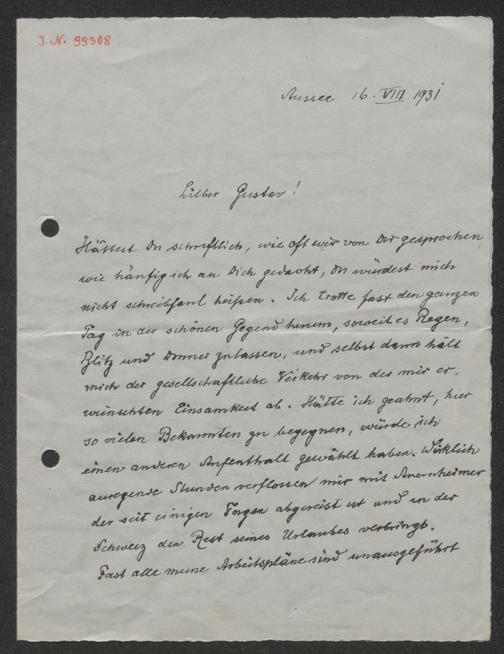 J. N. 99308
Aussee 16. VIII 1931
Lieber Gustav!
Hättest Du schriftlich, wie oft wir von Dir gesprochen,
wie häufig ich an Dich gedacht, Du würdest mich
nicht schreibfaul heißen. Ich trotte fast den ganzen
Tag in der schönen Gegend herum, soweit es Regen,
Blitz und Donner zulassen, und selbst dann hält
mich der gesellschaftliche Verkehr von der mir er-
wünschten Einsamkeit ab. Hätte ich geahnt, hier
so vielen Bekannten zu begegnen, würde ich
einen anderen Aufenthalt gewählt haben. Wirklich
anregende Stunden verflossen mir mit Auernheimer
der seit einigen Tagen abgereist ist und in der
Schweiz den Rest seines Urlaubes verbringt.
Fast alle meine Arbeitspläne sind unausgeführt